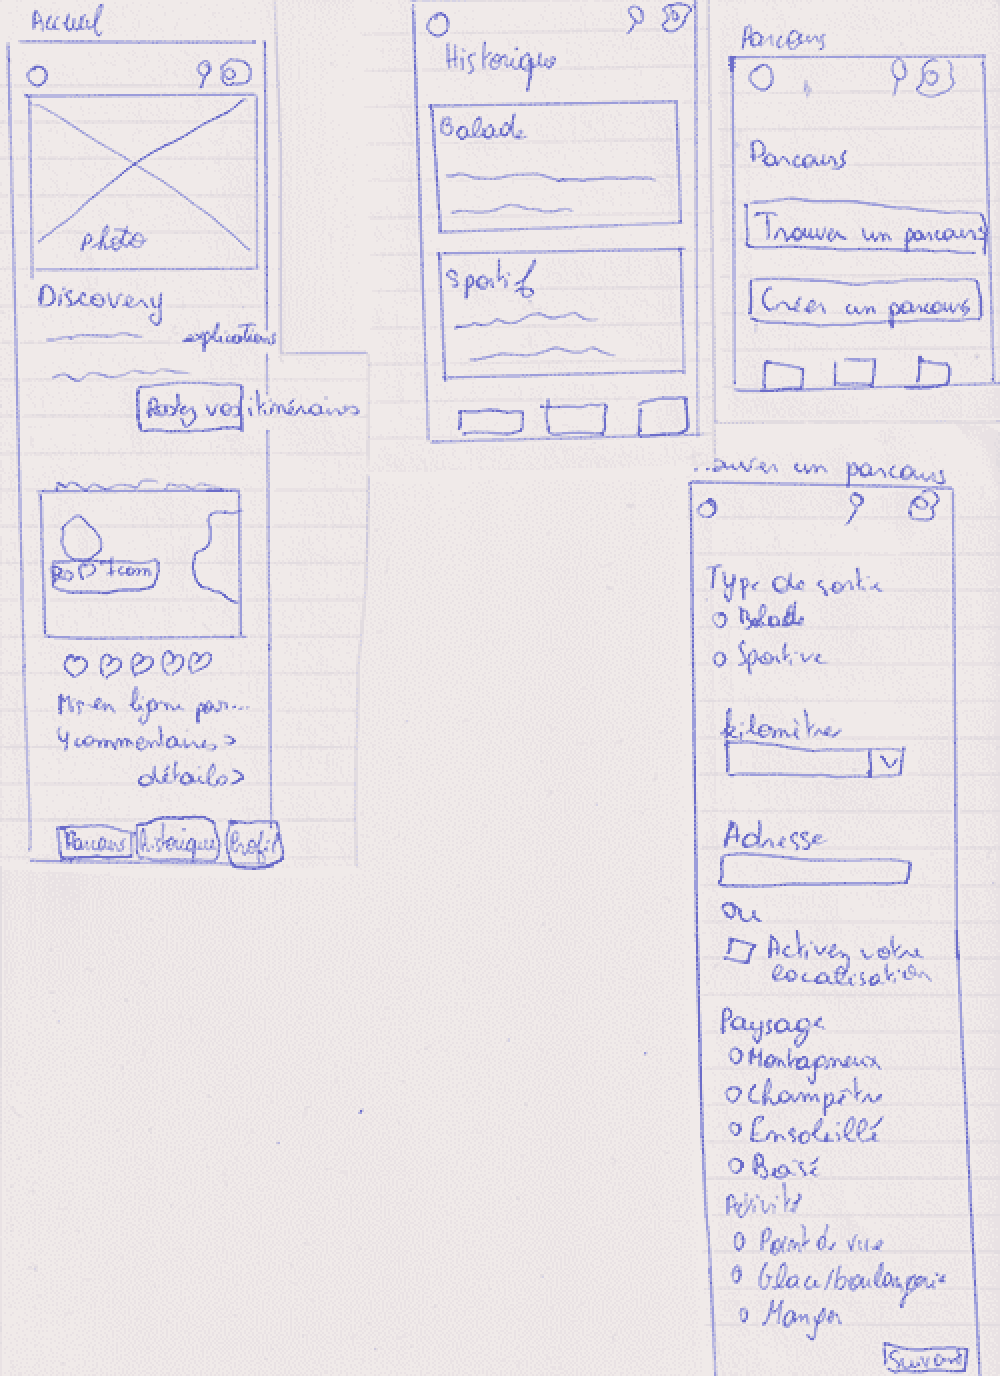 Accueil
photo
Discovery
explications
Postez vos itinéraires
com
Mis en ligne par...
4 commentaires >
détails >
Parcours
Historique
Profil
Historique
Balade
Sportif
Parcours
Parcours
Trouver un parcours
Créer un parcours
..ouver un parcours
Type de sortie
Balade
Sportive
kilomètres
Adresse
ou
Activez votre
localisation
Paysage
Montagneux
Champêtre
Ensoleillé
Boisé
Activité
Point de vue
Glace/boulangerie
Manger
Suivant